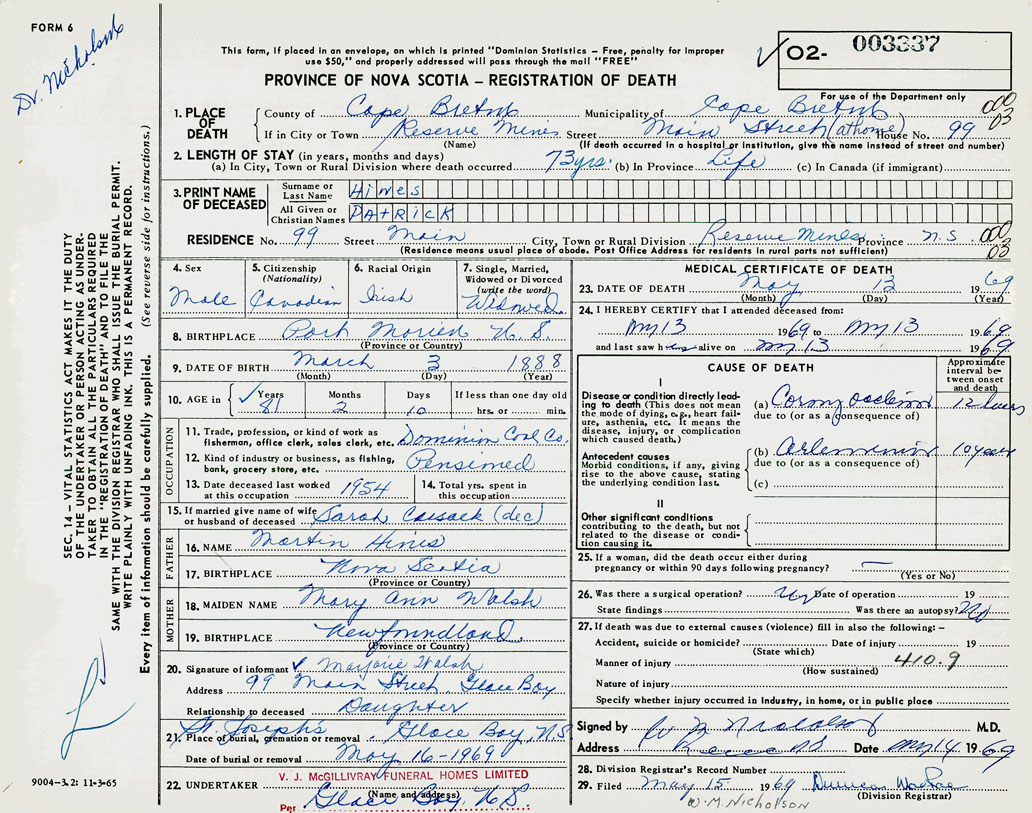 FORM 6
Dr. Nicholson
This form, if placed in an envelope, on which is printed "Dominion Statistics – Free, penalty for improper
use $50," and properly addressed will pass through the mail "FREE"
PROVINCE OF NOVA SCOTIA – REGISTRATION OF DEATH
O2- 003337
For use of the Department only
000
03
1. PLACE OF DEATH County of Cape Breton Municipality of Cape Breton
If in City or Town Reserve Mines Street Main Street (at home) House No. 99
(Name) (If death occurred in a hospital or institution, give the name instead of street and number)
2. LENGTH OF STAY (in years, months and days)
(a) In City, Town or Rural Division where death occurred 73 yrs. (b) In Province Life (c) In Canada (if immigrant)
3. PRINT NAME OF DECEASED Surname or Last Name Hines
All Given or Christian Names PATRICK
RESIDENCE No. 99 Street Main City, Town or Rural Division Reserve Mines Province N.S. 000
03
(Residence means usual place of abode. Post Office Address for residents in rural parts not sufficient)
4. Sex Male
5. Citizenship (Nationality) Canadian
6. Racial Origin Irish
7. Single, Married, Widowed or Divorced (write the word) Widowed
8. BIRTHPLACE Port Morien N.S.
(Province or Country)
9. DATE OF BIRTH March 3 1888
(Month) (Day) (Year)
10. AGE in Years Months Days If less than one day old
81 2 10 hrs. or min.
OCCUPATION
11. Trade, profession, or kind of work as
fisherman, office clerk, sales clerk, etc. Dominion Coal Co.
12. Kind of industry or business, as fishing,
bank, grocery store, etc. Pensioned
13. Date deceased last worked
at this occupation 1954
14. Total yrs. spent in
this occupation
15. If married give name of wife
or husband of deceased Sarah (dec)
FATHER
16. NAME Martin Hines
17. BIRTHPLACE Nova Scotia
(Province or Country)
MOTHER
18. MAIDEN NAME Mary Ann Walsh
19. BIRTHPLACE Newfoundland
(Province or Country)
20. Signature of informant Marjorie Walsh
Address 99 Main Street, Glace Bay
Relationship to deceased Daughter
St. Joseph's
21. Place of burial, cremation or removal Glace Bay, N.S.
Date of burial or removal May 16-1969
V. J. McGILLIVRAY FUNERAL HOMES LIMITED
22. UNDERTAKER
(Name and address)
Per Glace Bay, N.S.
MEDICAL CERTIFICATE OF DEATH
23. DATE OF DEATH May 13 1969
(Month) (Day) (Year)
24. I HEREBY CERTIFY that I attended deceased from:
My 13 1969 to My 13 1969
and last saw h alive on My 13 1969
CAUSE OF DEATH
Approximate interval between onset and death
I
Disease or condition directly leading to death (This does not mean the mode of dying, e.g., heart failure, asthenia, etc. It means the disease, injury, or complication which caused death.)
(a) Coronary occlusion 12 hours
due to (or as a consequence of)
Antecedent causes
Morbid conditions, if any, giving rise to the above cause, stating the underlying condition last.
(b) 10 years
due to (or as a consequence of)
(c)
II
Other significant conditions
contributing to the death, but not related to the disease or condition causing it.
25. If a woman, did the death occur either during
pregnancy or within 90 days following pregnancy? —
(Yes or No)
26. Was there a surgical operation? No Date of operation 19
State findings Was there an autopsy? No
27. If death was due to external causes (violence) fill in also the following: –
Accident, suicide or homicide? Date of injury 19
(State which)
Manner of injury 410.9
(How sustained)
Nature of injury
Specify whether injury occurred in industry, in home, or in public place
Signed by W M Nicholson M.D.
Address Date My 14 1969
28. Division Registrar's Record Number
29. Filed May 15 1969
(Division Registrar)
W.M. NICHOLSON
SEC. 14 – VITAL STATISTICS ACT MAKES IT THE DUTY
OF THE UNDERTAKER OR PERSON ACTING AS UNDER-
TAKER TO OBTAIN ALL THE PARTICULARS REQUIRED
IN THE "REGISTRATION OF DEATH" AND TO FILE THE
SAME WITH THE DIVISION REGISTRAR WHO SHALL ISSUE THE BURIAL PERMIT.
WRITE PLAINLY WITH UNFADING INK. THIS IS A PERMANENT RECORD.
Every item of information should be carefully supplied. (See reverse side for instructions.)
9004–3.2: 11-3-65